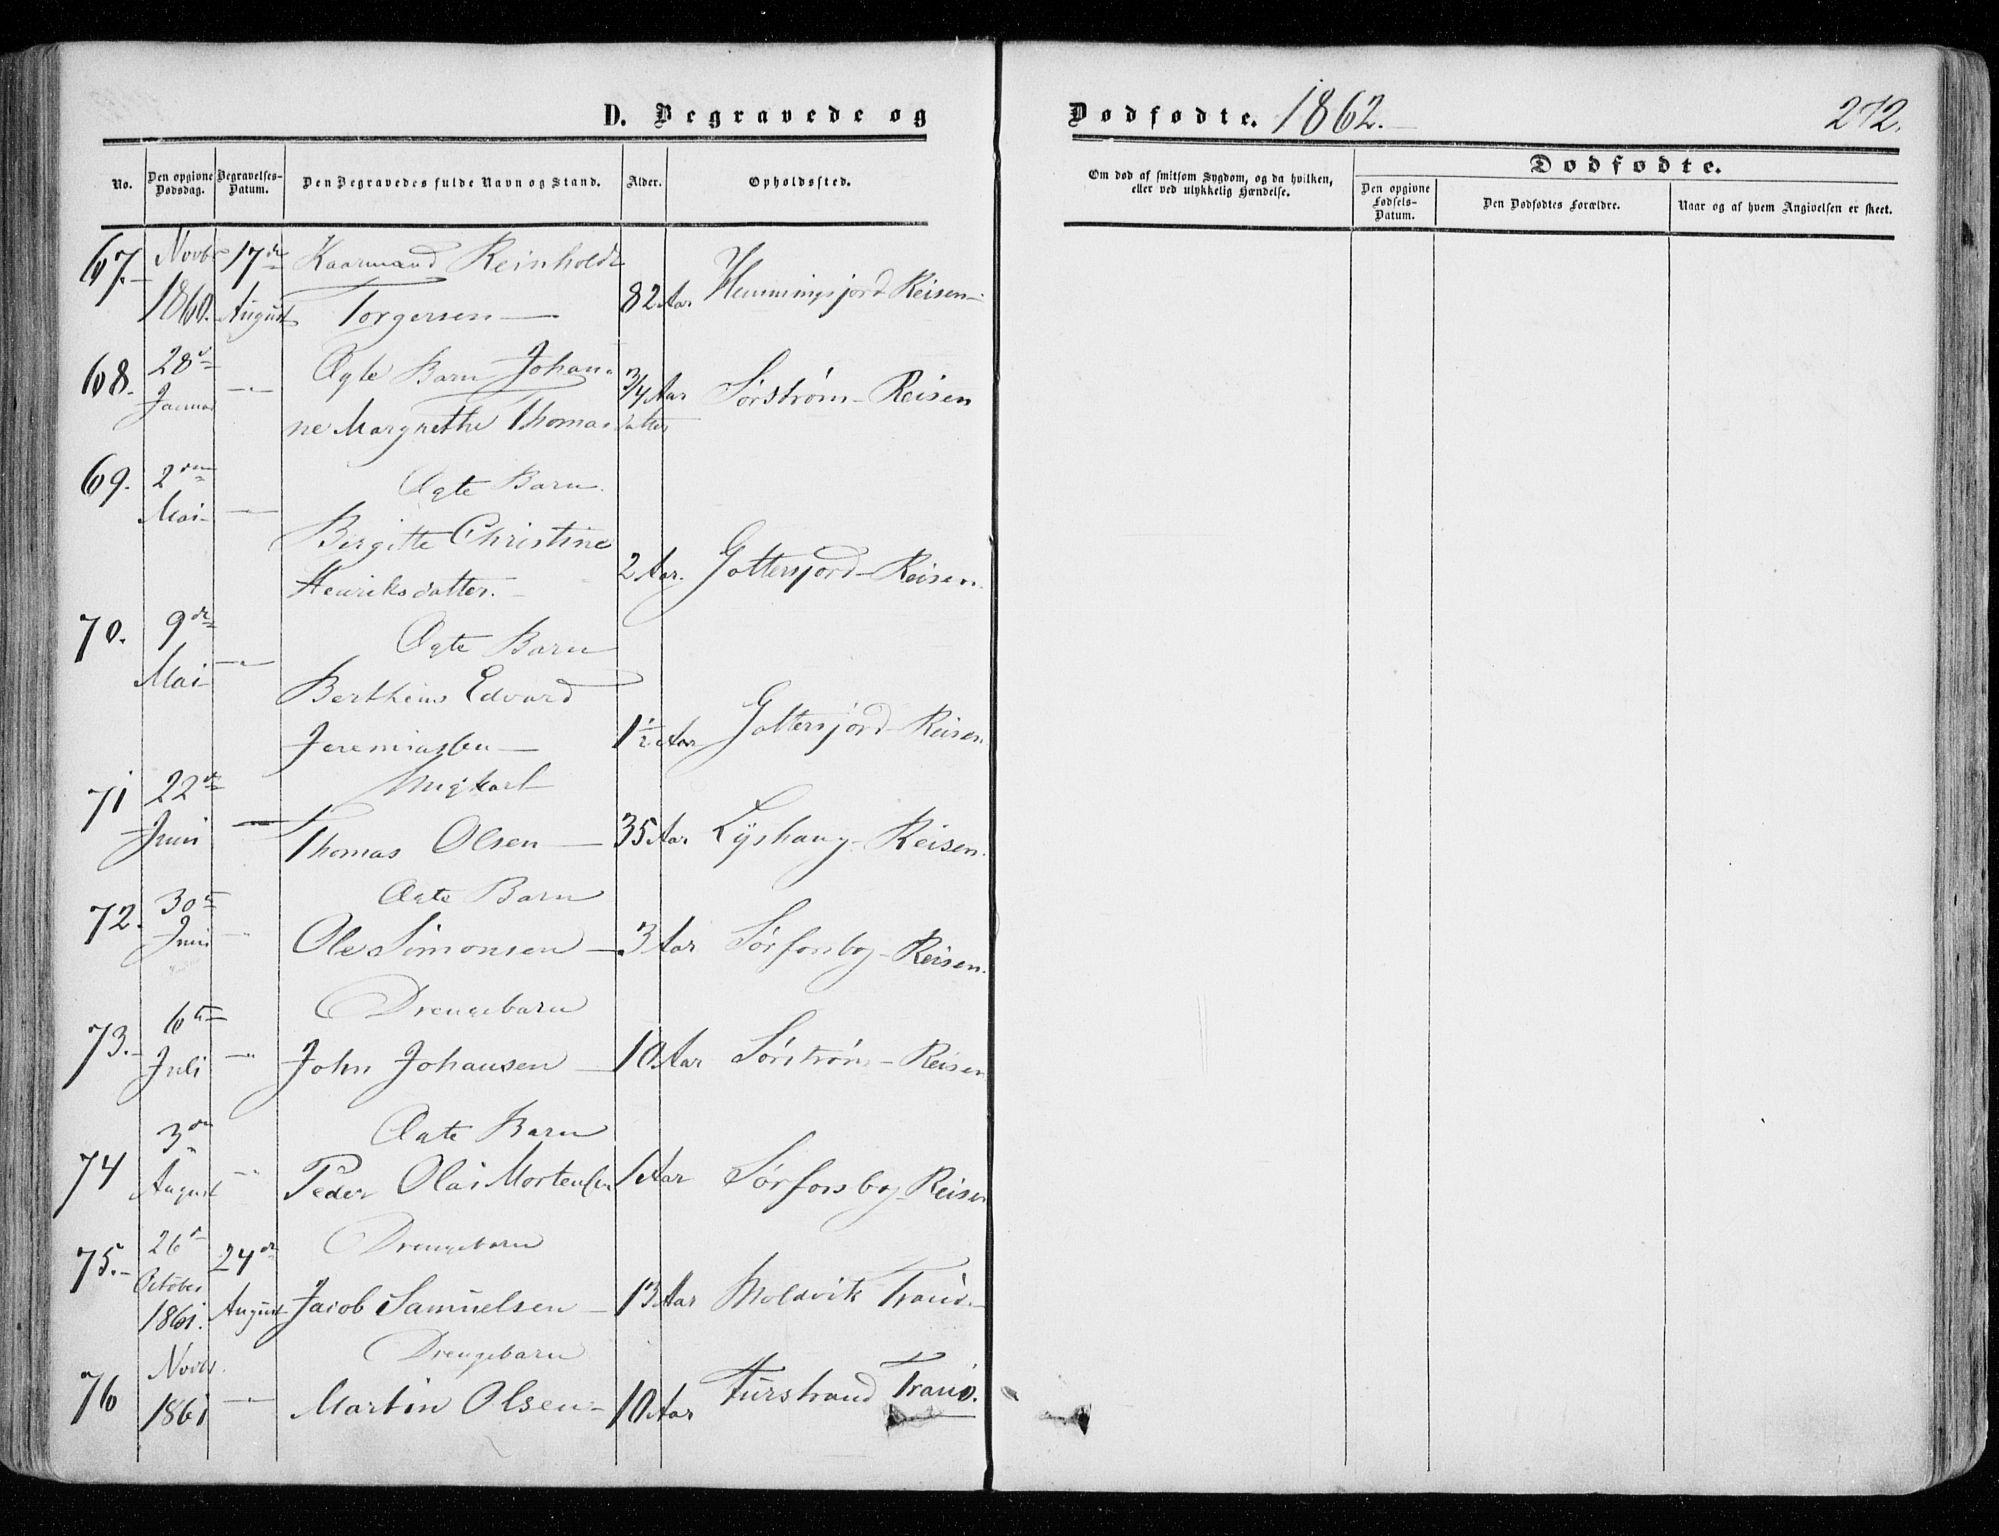 D. Begravede og Dødfødte. 1862.— 272.
No. Den opgivne Dødsdag. Begravelses-Datum. Den Begravedes fulde Navn og Stand. Alder. Opholdssted.
Om død af smitsom Sygdom, og da hvilken, eller ved ulykkelig Hændelse.
Dødfødte.
Den opgivne Fødsels-Datum. Den Dødfødtes Forældre. Naar og af hvem Angivelsen er skeet.
67. Novbr 17de Kaarmand Reinholdt
1860. August Torgersen — 82 Aar Hemmingsjord Reisen —
68. 28de — Ægte Barn Johan-
Januar ne Margrethe Thomasdatter 3/4 Aar Sørstrøm - Reisen
69. 2den Ægte Barn.
Mai — Birgitte Christine
Henriksdatter. — 2 Aar. Gottersjord - Reisen.
70. 9de Ægte Barn
Mai — Bertheus Edvard
Jeremiassen — 1 1/2 Aar Gottersjord - Reisen
71 22de Ungkarl
Juni — Thomas Olsen — 35 Aar Lyshaug - Reisen.
72. 30te Ægte Barn
Juni — Ole Simonsen — 3 Aar Sørforsbog - Reisen.
73. 6te Drengebarn
Juli — John Johansen — 10 Aar Sørstrøm - Reisen
74 3die Ægte Barn
August — Peder Olai Mortensen 1 Aar Sørforsbog - Reisen
75. 26de 24de Drengebarn
October
1861. August Jacob Samuelsen — 13 Aar Moldvik Tranø. —
76 Novbr. Drengebarn
1861 — Martin Olsen — 10 Aar Furstrand Tranø.